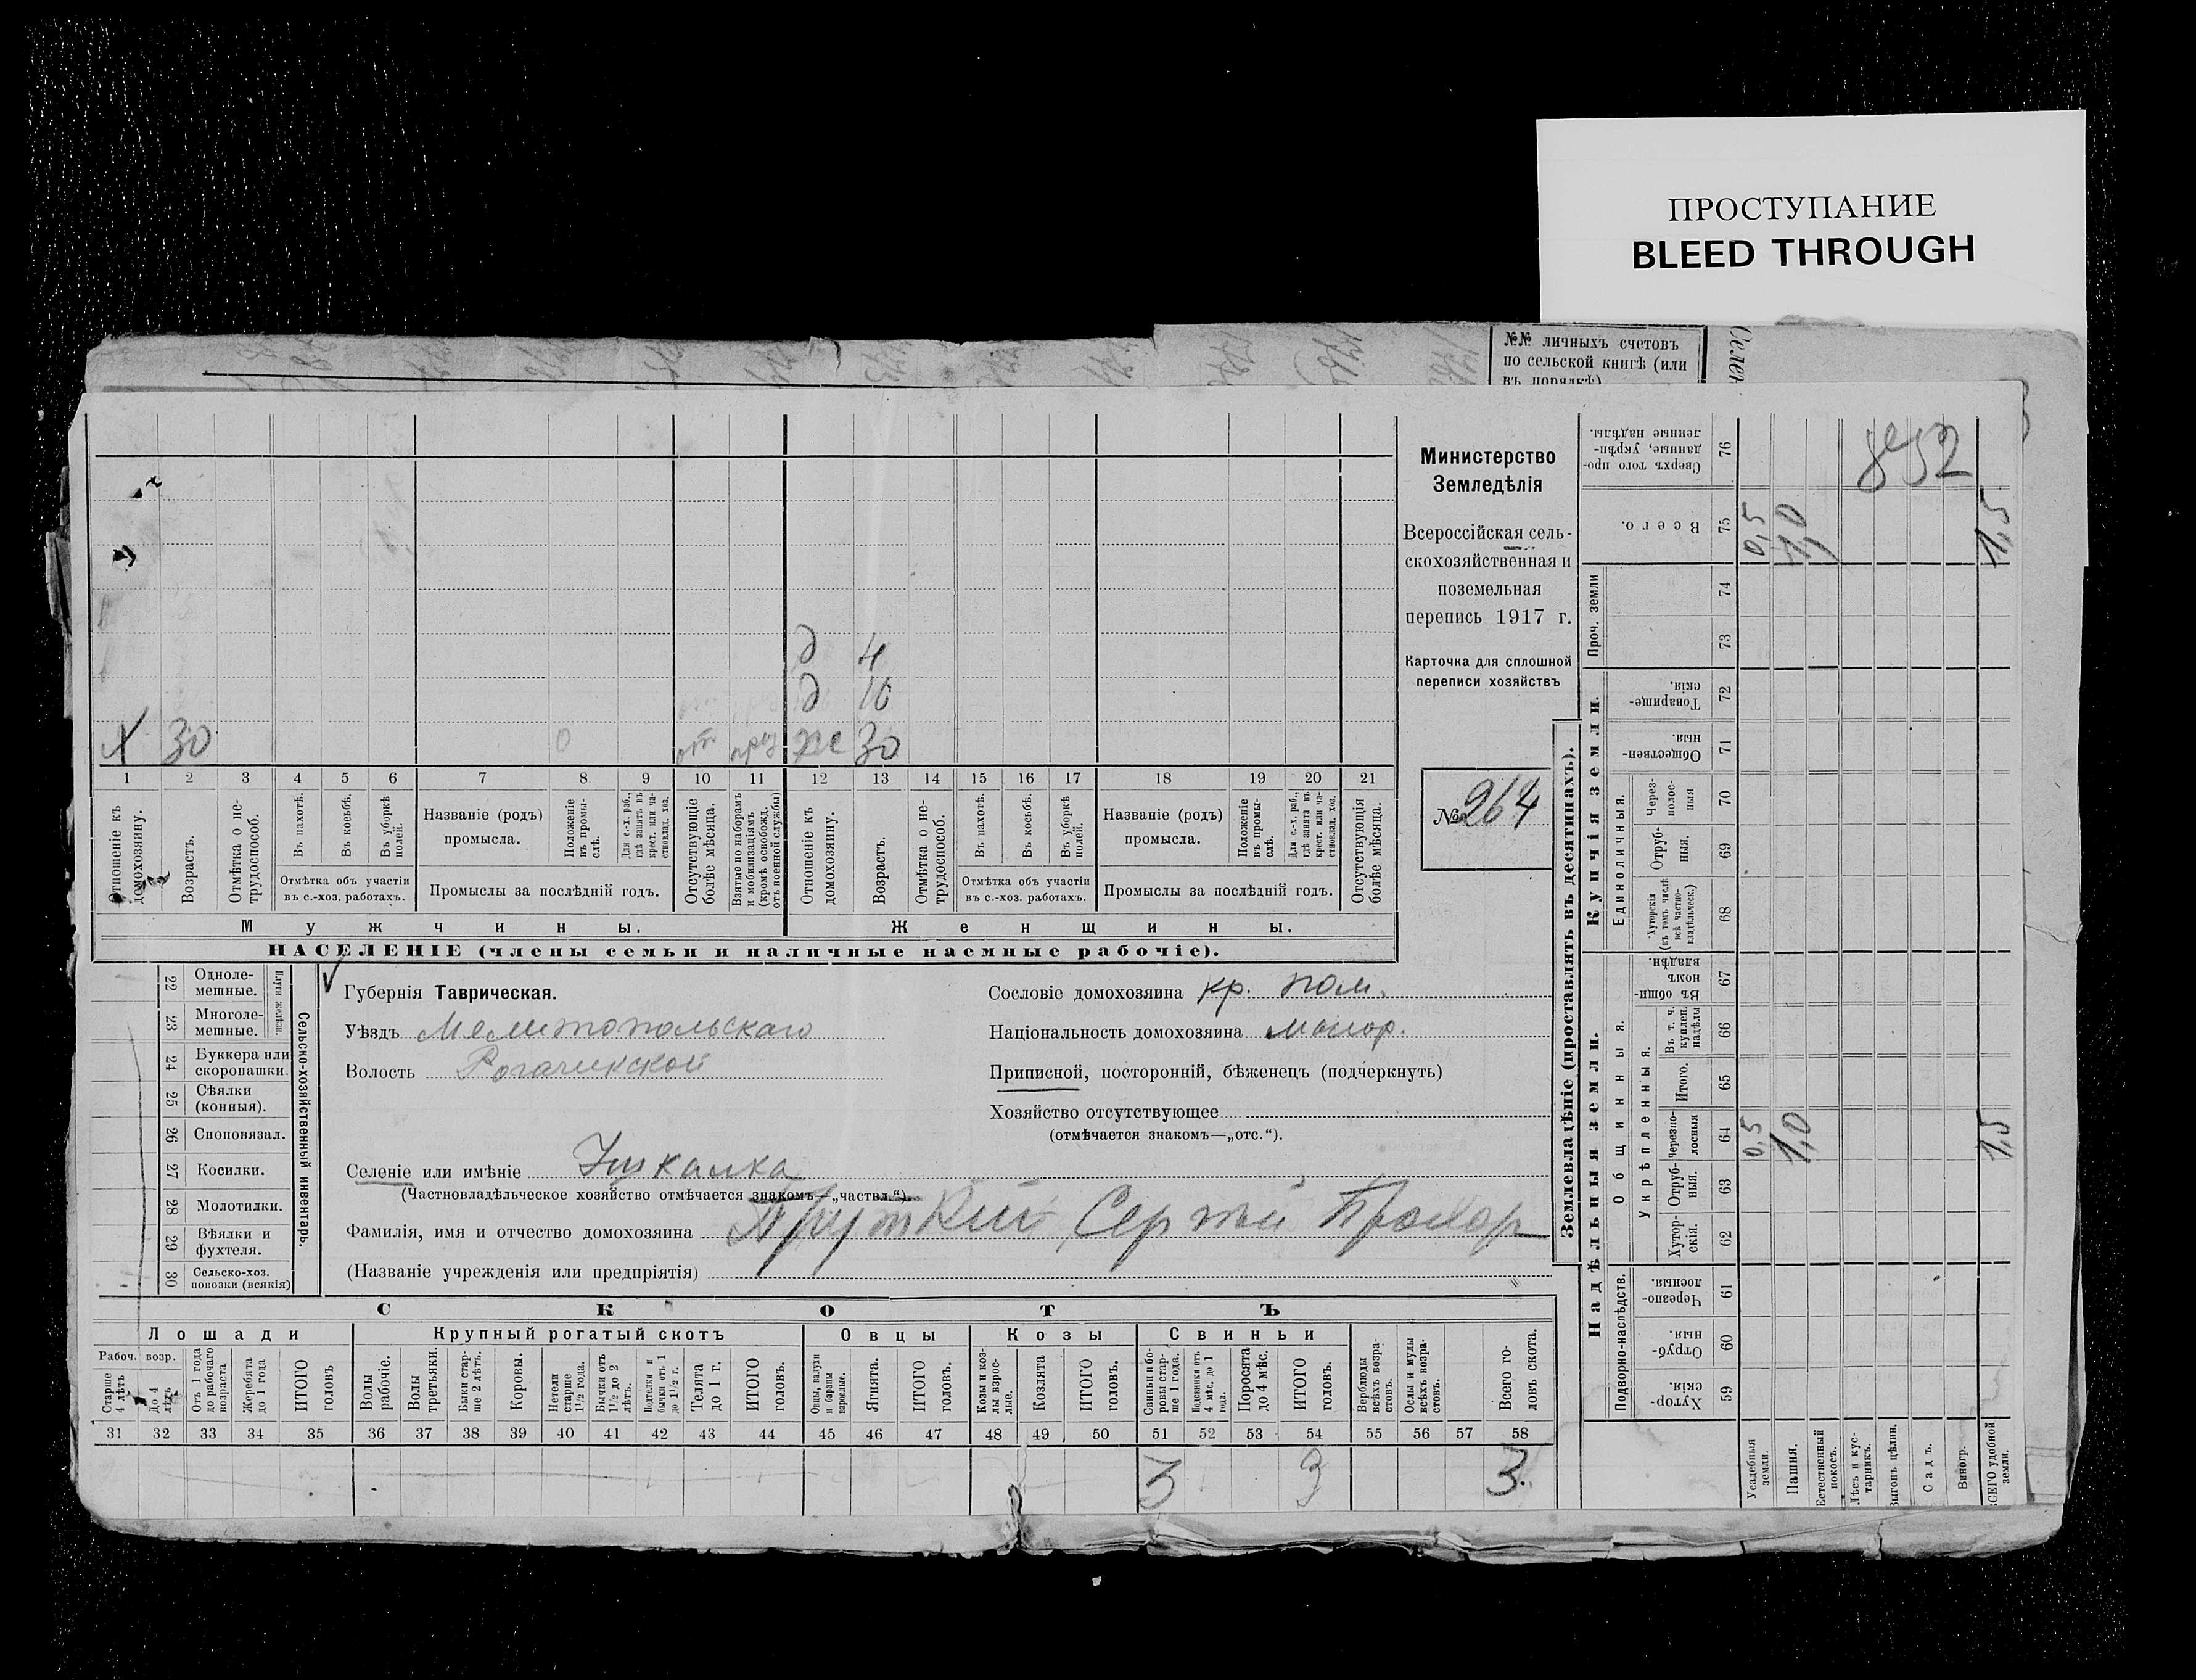 ПРОСТУПАНИЕ
BLEED THROUGH
№№ личныхъ счетовъ
по сельской книгѣ (или
въ порядкѣ)
Селен
Министерство
Земледѣлія
Всероссійская сель-
скохозяйственная и
поземельная
перепись 1917 г.
Карточка для сплошной
переписи хозяйствъ
№ 264
д 4
д 10
Х 30 0 от приз хс 30
1 2 3 4 5 6 7 8 9 10 11 12 13 14 15 16 17 18 19 20 21
Отношеніе къ домохозяину.
Возрастъ.
Отмѣтка о не-трудоспособ.
Въ пахотѣ.
Въ косьбѣ.
Въ уборкѣ полей.
Отмѣтка объ участіи въ с.-хоз. работахъ.
Названіе (родъ) промысла.
Положеніе въ промы-слѣ.
Для с.-х. раб., гдѣ занятъ въ крест. или ча-стновлад. хоз.
Промыслы за послѣдній годъ.
Отсутствующіе болѣе мѣсяца.
Взятые по наборамъ и мобилизаціямъ (кромѣ освобожд. отъ военной службы)
Отношеніе къ домохозяину.
Возрастъ.
Отмѣтка о не-трудоспособ.
Въ пахотѣ.
Въ косьбѣ.
Въ уборкѣ полей.
Отмѣтка объ участіи въ с.-хоз. работахъ.
Названіе (родъ) промысла.
Положеніе въ промы-слѣ.
Для с.-х. раб., гдѣ занята въ крест. или ча-стновлад. хоз.
Промыслы за послѣдній годъ.
Отсутствующія болѣе мѣсяца.
Мужчины. Женщины.
НАСЕЛЕНІЕ (члены семьи и наличные наемные рабочіе).
22 Одноле-мешные.
23 Многоле-мешные.
Плуги желѣзн.
24 Буккера или скоропашки.
25 Сѣялки (конныя).
26 Сноповязал.
27 Косилки.
28 Молотилки.
29 Вѣялки и фухтеля.
30 Сельско-хоз. повозки (всякія)
Сельско-хозяйственный инвентарь.
Губернія Таврическая.
Уѣздъ Мелитопольскаго
Волость Рогачикской
Селеніе или имѣніе Ушкалка
(Частновладѣльческое хозяйство отмѣчается знакомъ—„частвл.“).
Фамилія, имя и отчество домохозяина Пруткий Сергей Прохор
(Названіе учрежденія или предпріятія)
Сословіе домохозяина кр. пом.
Національность домохозяина малор.
Приписной, посторонній, бѣженецъ (подчеркнуть)
Хозяйство отсутствующее
(отмѣчается знакомъ—„отс.“).
СКОТЪ
Лошади Крупный рогатый скотъ Овцы Козы Свиньи
Рабоч. возр.
Старше 4 лѣтъ
До 4 лѣтъ
Отъ 1 года до рабочаго возраста
Жеребята до 1 года
ИТОГО головъ
Волы рабочіе.
Волы третьяки.
Быки стар-ше 2 лѣтъ.
Коровы.
Нетели старше 1½ года.
Бычки отъ 1½ до 2 лѣтъ.
Подтелки и бычки отъ 1 до 1½ г.
Телята до 1 г.
ИТОГО головъ.
Овцы, валухи и бараны взрослые.
Ягнята.
ИТОГО головъ.
Козы и коз-лы взрос-лые.
Козлята
ИТОГО головъ.
Свиньи и бо-ровы стар-ше 1 года.
Подсвинки отъ 4 мѣс. до 1 года.
Поросята до 4 мѣс.
ИТОГО головъ.
Верблюды всѣхъ возра-стовъ.
Ослы и мулы всѣхъ возра-стовъ.
Всего го-ловъ скота.
31 32 33 34 35 36 37 38 39 40 41 42 43 44 45 46 47 48 49 50 51 52 53 54 55 56 57 58
3 3 3.
Землевладѣніе (проставлять въ десятинахъ).
Надѣльныя земли. Купчія земли. Проч. земли
Подворно-наслѣдств.
Общинныя.
Укрѣпленныя.
Единоличныя.
Хутор-скія 59
Отруб-ныя. 60
Черезпо-лосныя. 61
Хутор-скія. 62
Отруб-ныя. 63
Черезпо-лосныя 64 0,5 1,0 1,5
Итого. 65
Въ т. ч. куплен. надѣлы 66
Въ общи-номъ владѣн. 67
Хуторскія (въ томъ числѣ всѣ частно-владѣльческ.) 68
Отруб-ныя. 69
Через-полос-ныя 70
Обществен-ныя. 71
Товарище-скія. 72
73
74
Всего. 75 0,5 1,0 1,5
Сверхъ того про-данные, укрѣп-ленные надѣлы. 76
Усадебныя земли.
Пашня.
Естественный покосъ.
Лѣсъ и кус-тарникъ.
Выгонъ цѣлин.
Садъ.
Виногр.
ВСЕГО удобной земли.